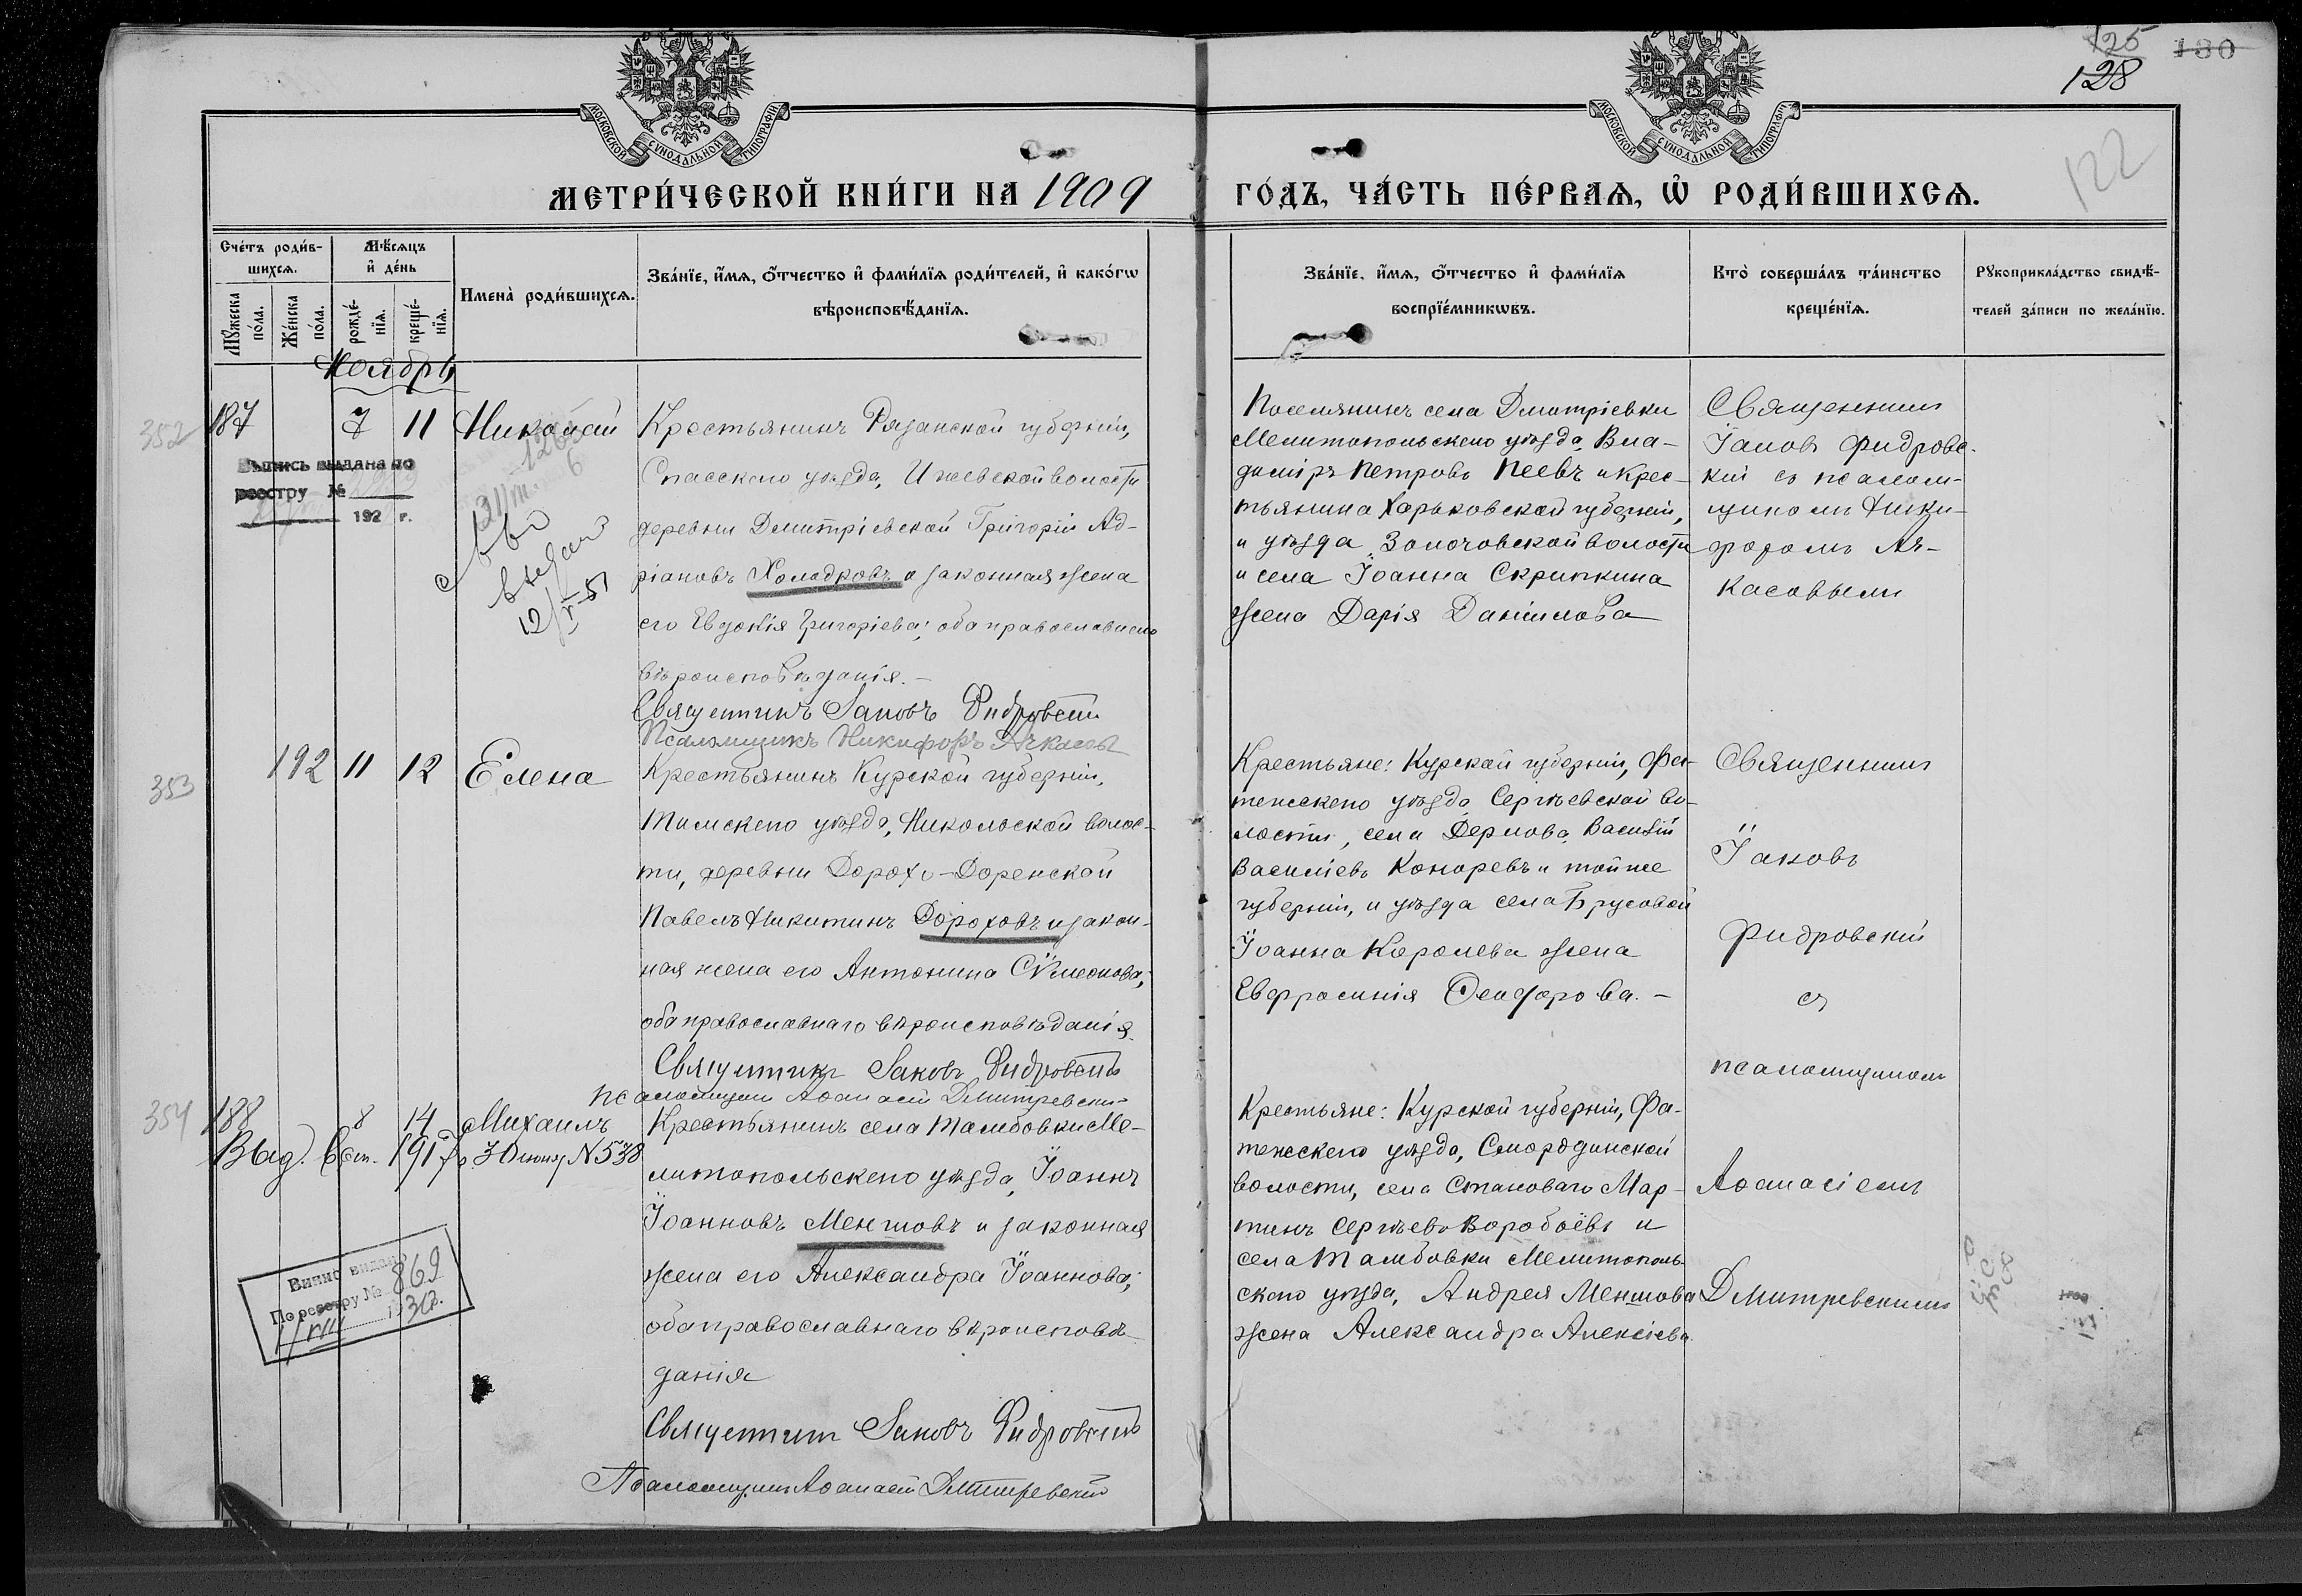 125
130
128
122
МОСКОВСКОЙ СѴНОДАЛЬНОЙ ТИПОГРАФІИ
МОСКОВСКОЙ СѴНОДАЛЬНОЙ ТИПОГРАФІИ
МЕТРИ́ЧЕСКОЙ КНИ́ГИ НА 1909
ГО́ДЪ, ЧА́СТЬ ПЕ́РВАѦ, Ѡ҆ РОДИ́ВШИХСѦ.
Сче́тъ роди́в-
шихсѧ.
Мѣ́сѧцъ
и҆ де́нь
Имена̀ роди́вшихсѧ.
Зва́нїе, и҆́мѧ, о҆́тчество и҆ фами́лїѧ роди́телей, и҆ како́гѡ
вѣроисповѣ́данїѧ.
Мꙋ́жеска по́ла.
Же́нска по́ла.
рожде́-
нїѧ.
креще́-
нїѧ.
Зва́нїе, и҆́мѧ, о҆́тчество и҆ фами́лїѧ
воспрїе́мникѡвъ.
Кто̀ соверша́лъ та́инство
креще́нїѧ.
Рꙋкоприкла́дство свидѣ́-
телей за́писи по жела́нїю.
Ноябрь
352
187
7
11
Николай
Крестьянинъ Рязанской губерніи,
Спасскаго уѣзда, Ижевской волости
деревни Димитріевской Григорій Ад-
ріановъ Холодковъ и законная жена
его Евдокія Григоріева; оба православнаго
вѣроисповѣданія.-
Священникъ Іаковъ Фидровскій
Псаломщикъ Никифоръ Ачкасовъ
Выпись выдана по
реестру №
192 г.
12/V-51
Поселянинъ села Дмитріевки
Мелитопольскаго уѣзда, Вла-
диміръ Петровъ Пеевъ и крес-
тьянина Харьковской губерніи,
и уѣзда, Золочовской волости
и села Іоанна Скрипкина
жена Дарія Даніилова
Священникъ
Іаковъ Фидровс-
кій съ псалом-
щикомъ Ники-
форомъ Ач-
касовымъ
353
192
11
12
Елена
Крестьянинъ Курской губерніи,
Тимскаго уѣзда, Никольской волос-
ти, деревни Дорохо-Доренской
Павелъ Никитинъ Дороховъ и закон-
ная жена его Антонина Сѷмеонова;
оба православнаго вѣроисповѣданія
Священникъ Іаковъ Фидровскій
псаломщикъ Аѳанасій Дмитревскій
Крестьяне: Курской губерніи, Фа-
тежскаго уѣзда, Сергѣевской во-
лости, села Дерлова, Василій
Василіевъ Конаревъ и той же
губерніи, и уѣзда села Брусовой
Іоанна Королева жена
Евфросинія Ѳеодорова.-
Священникъ
Іаковъ
Фидровскій
съ
псаломщикомъ
Аѳанасіемъ
Дмитревскимъ
354
188
8
14
Михаилъ
Выд. 1917 г. 30 іюня N 538
Крестьянинъ села Тамбовки Ме-
литопольскаго уѣзда, Іоаннъ
Іоанновъ Меншовъ и законная
жена его Александра Іоаннова;
оба православнаго вѣроисповѣ-
данія
Священникъ Іаковъ Фидровскій
Псаломщикъ Аѳанасій Дмитревскій
Крестьяне: Курской губерніи, Фа-
тежскаго уѣзда, Смородинской
волости, села Становаго Мар-
тинъ Сергѣевъ Воробьёвъ и
села Тамбовки Мелитополь-
скаго уѣзда, Андрея Меншова
жена Александра Алексіева
По реестру № 869